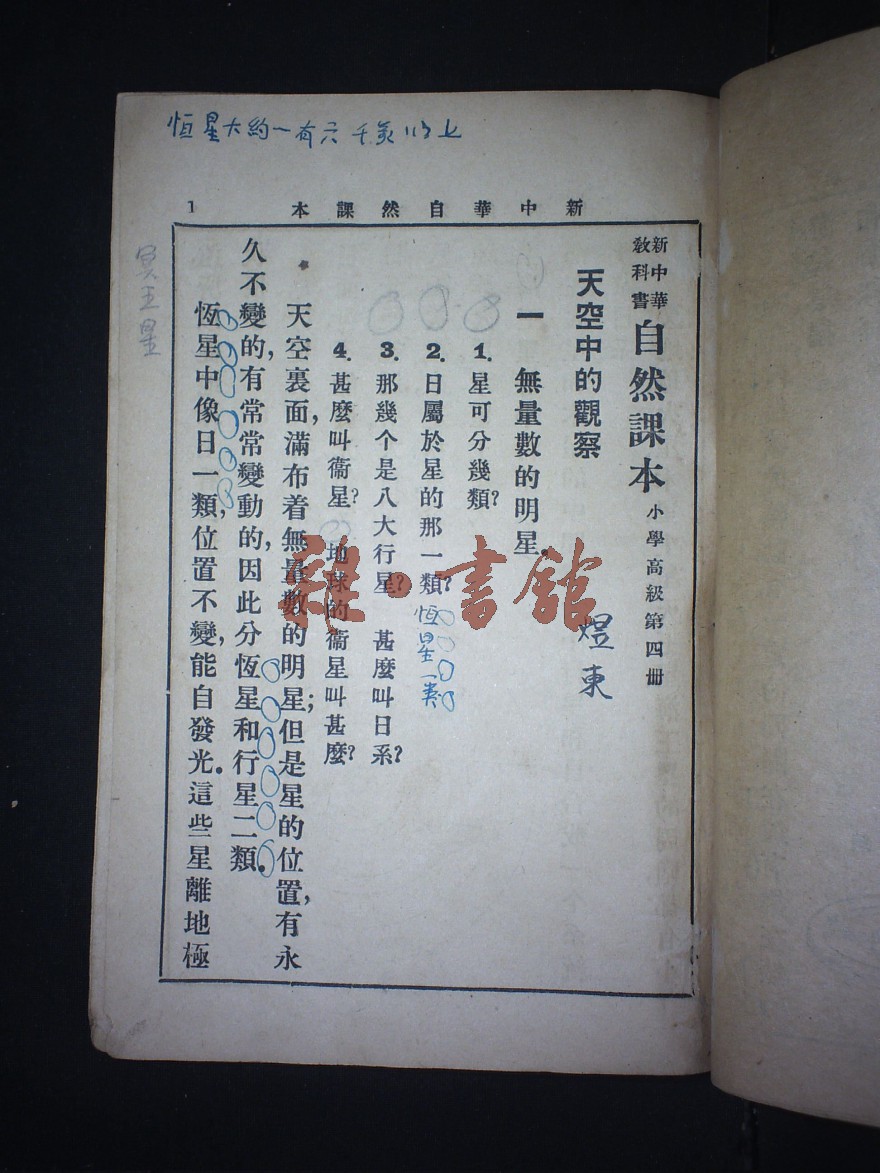 恆星大約一有六千
新中華自然課本
1
新中華
教科書
自然課本
小學高級第四冊
煜東
天空中的觀察
一 無量數的明星.
1. 星可分幾類?
2. 日屬於星的那一類?
恒星一类
3. 那幾个是八大行星? 甚麼叫日系?
4. 甚麼叫衞星? 地球的衞星叫甚麼?
天空裏面,滿布着無量數的明星;但是星的位置,有永
久不變的,有常常變動的,因此分恆星和行星二類.
恆星中像日一類,位置不變,能自發光.這些星離地極
冥王星
雜·書館